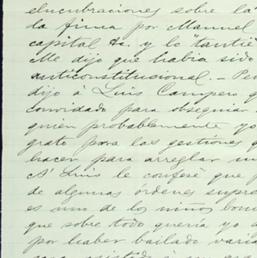 elucubraciones sobre la
la firma por Manuel
capital &c. y lo
Me dijo que habia sido
anticonstitucional. – Pe
dijo á Luis Campero q
convidado para obsequiar
quien probablemente yo
grato para las gestiones q
hacer para arreglar un
A Luis le confesé que
de algunas órdenes supre
es uno de los niños
que sobre todo queria yo a
por haber bailado varia